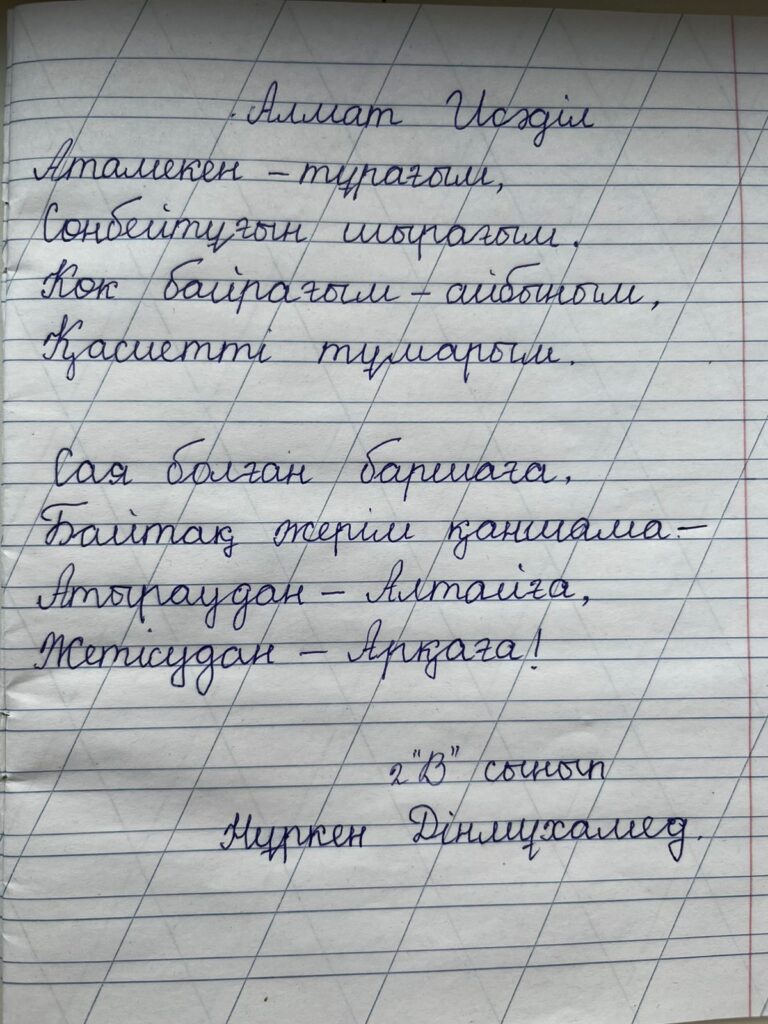 Алмат Исәділ
Атамекен – тұрағым,
Сөнбейтұғын шырағым.
Көк байрағым – айбыным,
Қасиетті тұмарым.
Сая болған баршаға,
Байтақ жерім қаншама –
Атыраудан – Алтайға,
Жетісудан – Арқаға!
2 "В" сынып
Нұркен Дінмұхамед.